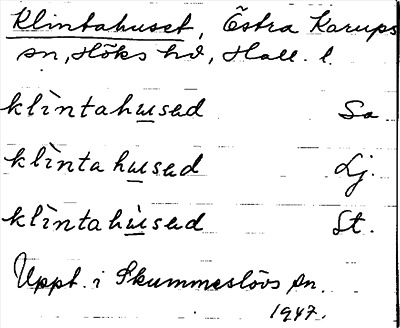 Klintahuset, Östra Karups
sn, Höks hd, Hall. l.
klìntahusəd Sa
klìntahusəd Lj.
klìntahùsəd St.
Uppt. i Skummeslövs sn.
1947.